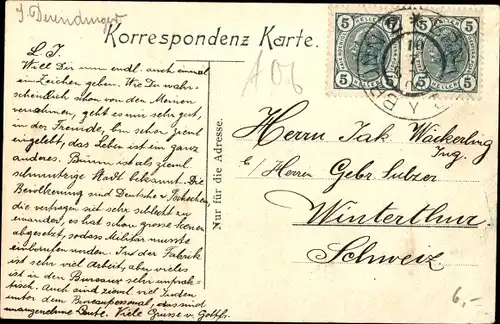 J. Derendinger
Korrespondenz Karte.
A 06
5 HELLER 5
5 HELLER 5
L. J.
Will Dir nun endl. auch einmal
ein Zeichen geben. Wie Du wahr-
scheinlich schon von den Meinen
vernahmen, geht es mir sehr gut,
in der Fremde, bin schon ziemI
eingelebt, das Leben ist ein ganz
anderes. Brünn ist als zieml.
schmutzige Stadt bekannt. Die
Bevölkerung sind Deutsche u. Tschechen,
die vertragen sich sehr schlecht zu
einander, es hat schon grosse Scenen
abgesetzt, sodass Militär musste
einberufen werden. In der Fabrik
ist sehr viel Arbeit, aber vieles
ist in den Bureaux sehr unprak-
tisch. Auch sind zieml viel Juden
unter dem Bureaupersonal, das sind
unangenehme Leute. Viele Grüsse v. Gottfr.
Nur für die Adresse.
Herrn Jak Wackerling
Ing.
b/ Herren Gebr. Sulzer
Winterthur
Schweiz
6,-